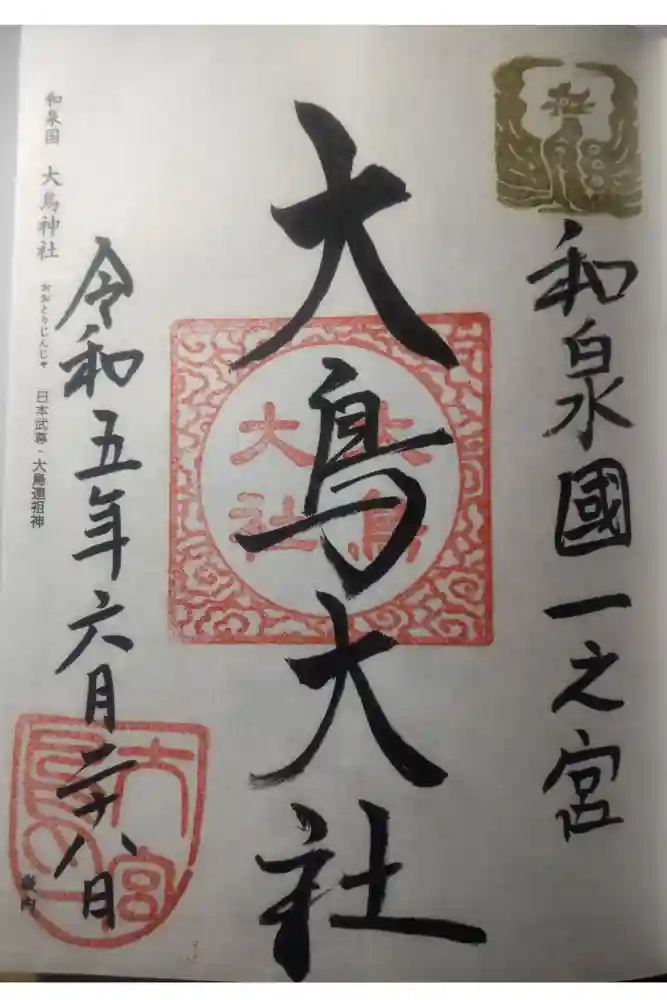 和泉國一之宮
大鳥大社
大鳥
大社
令和五年六月二十八日
和泉国 大鳥神社 おおとりじんじゃ 日本武尊・大鳥連祖神
畿内